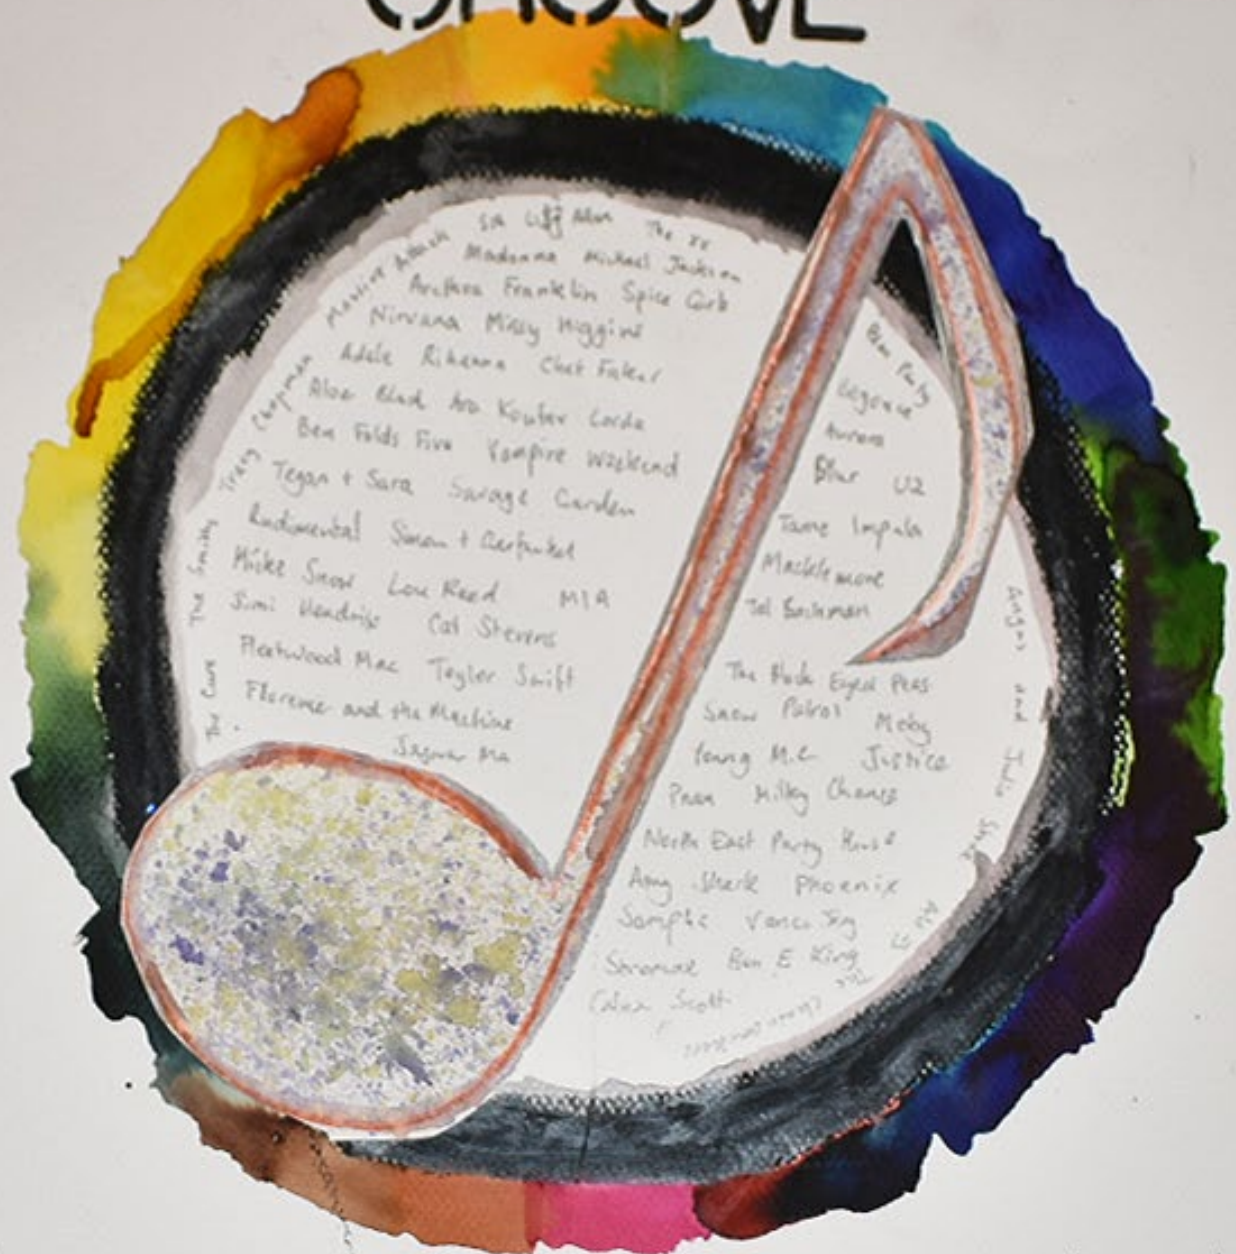 GROOVE
Sia Lily Allen The XX
Massive Attack
Madonna Michael Jackson
Aretha Franklin Spice Girls
Nirvana Missy Higgins
Adele Rihanna Chet Faker
Aloe Blacc Lorde
Ben Folds Five Vampire Weekend
Tegan + Sara Savage Garden
Rudimental Simon + Garfunkel
Miike Snow Lou Reed MIA
Jimi Hendrix Cat Stevens
Fleetwood Mac Taylor Swift
Florence and the Machine
Jagwar Ma
Tracy Chapman
The Smiths
The Cure
Bloc Party
Aurora
Blur U2
Tame Impala
Macklemore
Tal Bachman
The Black Eyed Peas
Snow Patrol Moby
Young M.C Justice
Pnau Milky Chance
North East Party House
Amy Shark Phoenix
Sampha Vance Joy
Ben E King
Calum Scott
Angus and Julia Stone
The Chainsmokers